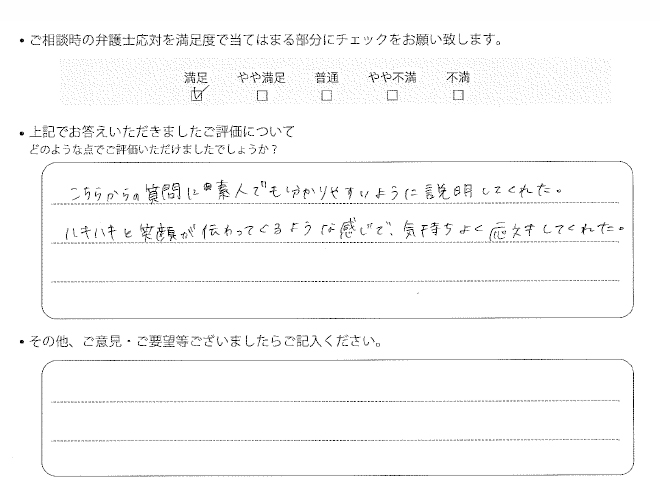 ・ご相談時の弁護士応対を満足度で当てはまる部分にチェックをお願い致します。
満足 やや満足 普通 やや不満 不満
☑ □ □ □ □
・上記でお答えいただきましたご評価について
どのような点でご評価いただけましたでしょうか？
こちらからの質問に素人でも分かりやすいように説明してくれた。
ハキハキと笑顔が伝わってくるような感じで、気持ちよく応対してくれた。
・その他、ご意見・ご要望等ございましたらご記入ください。